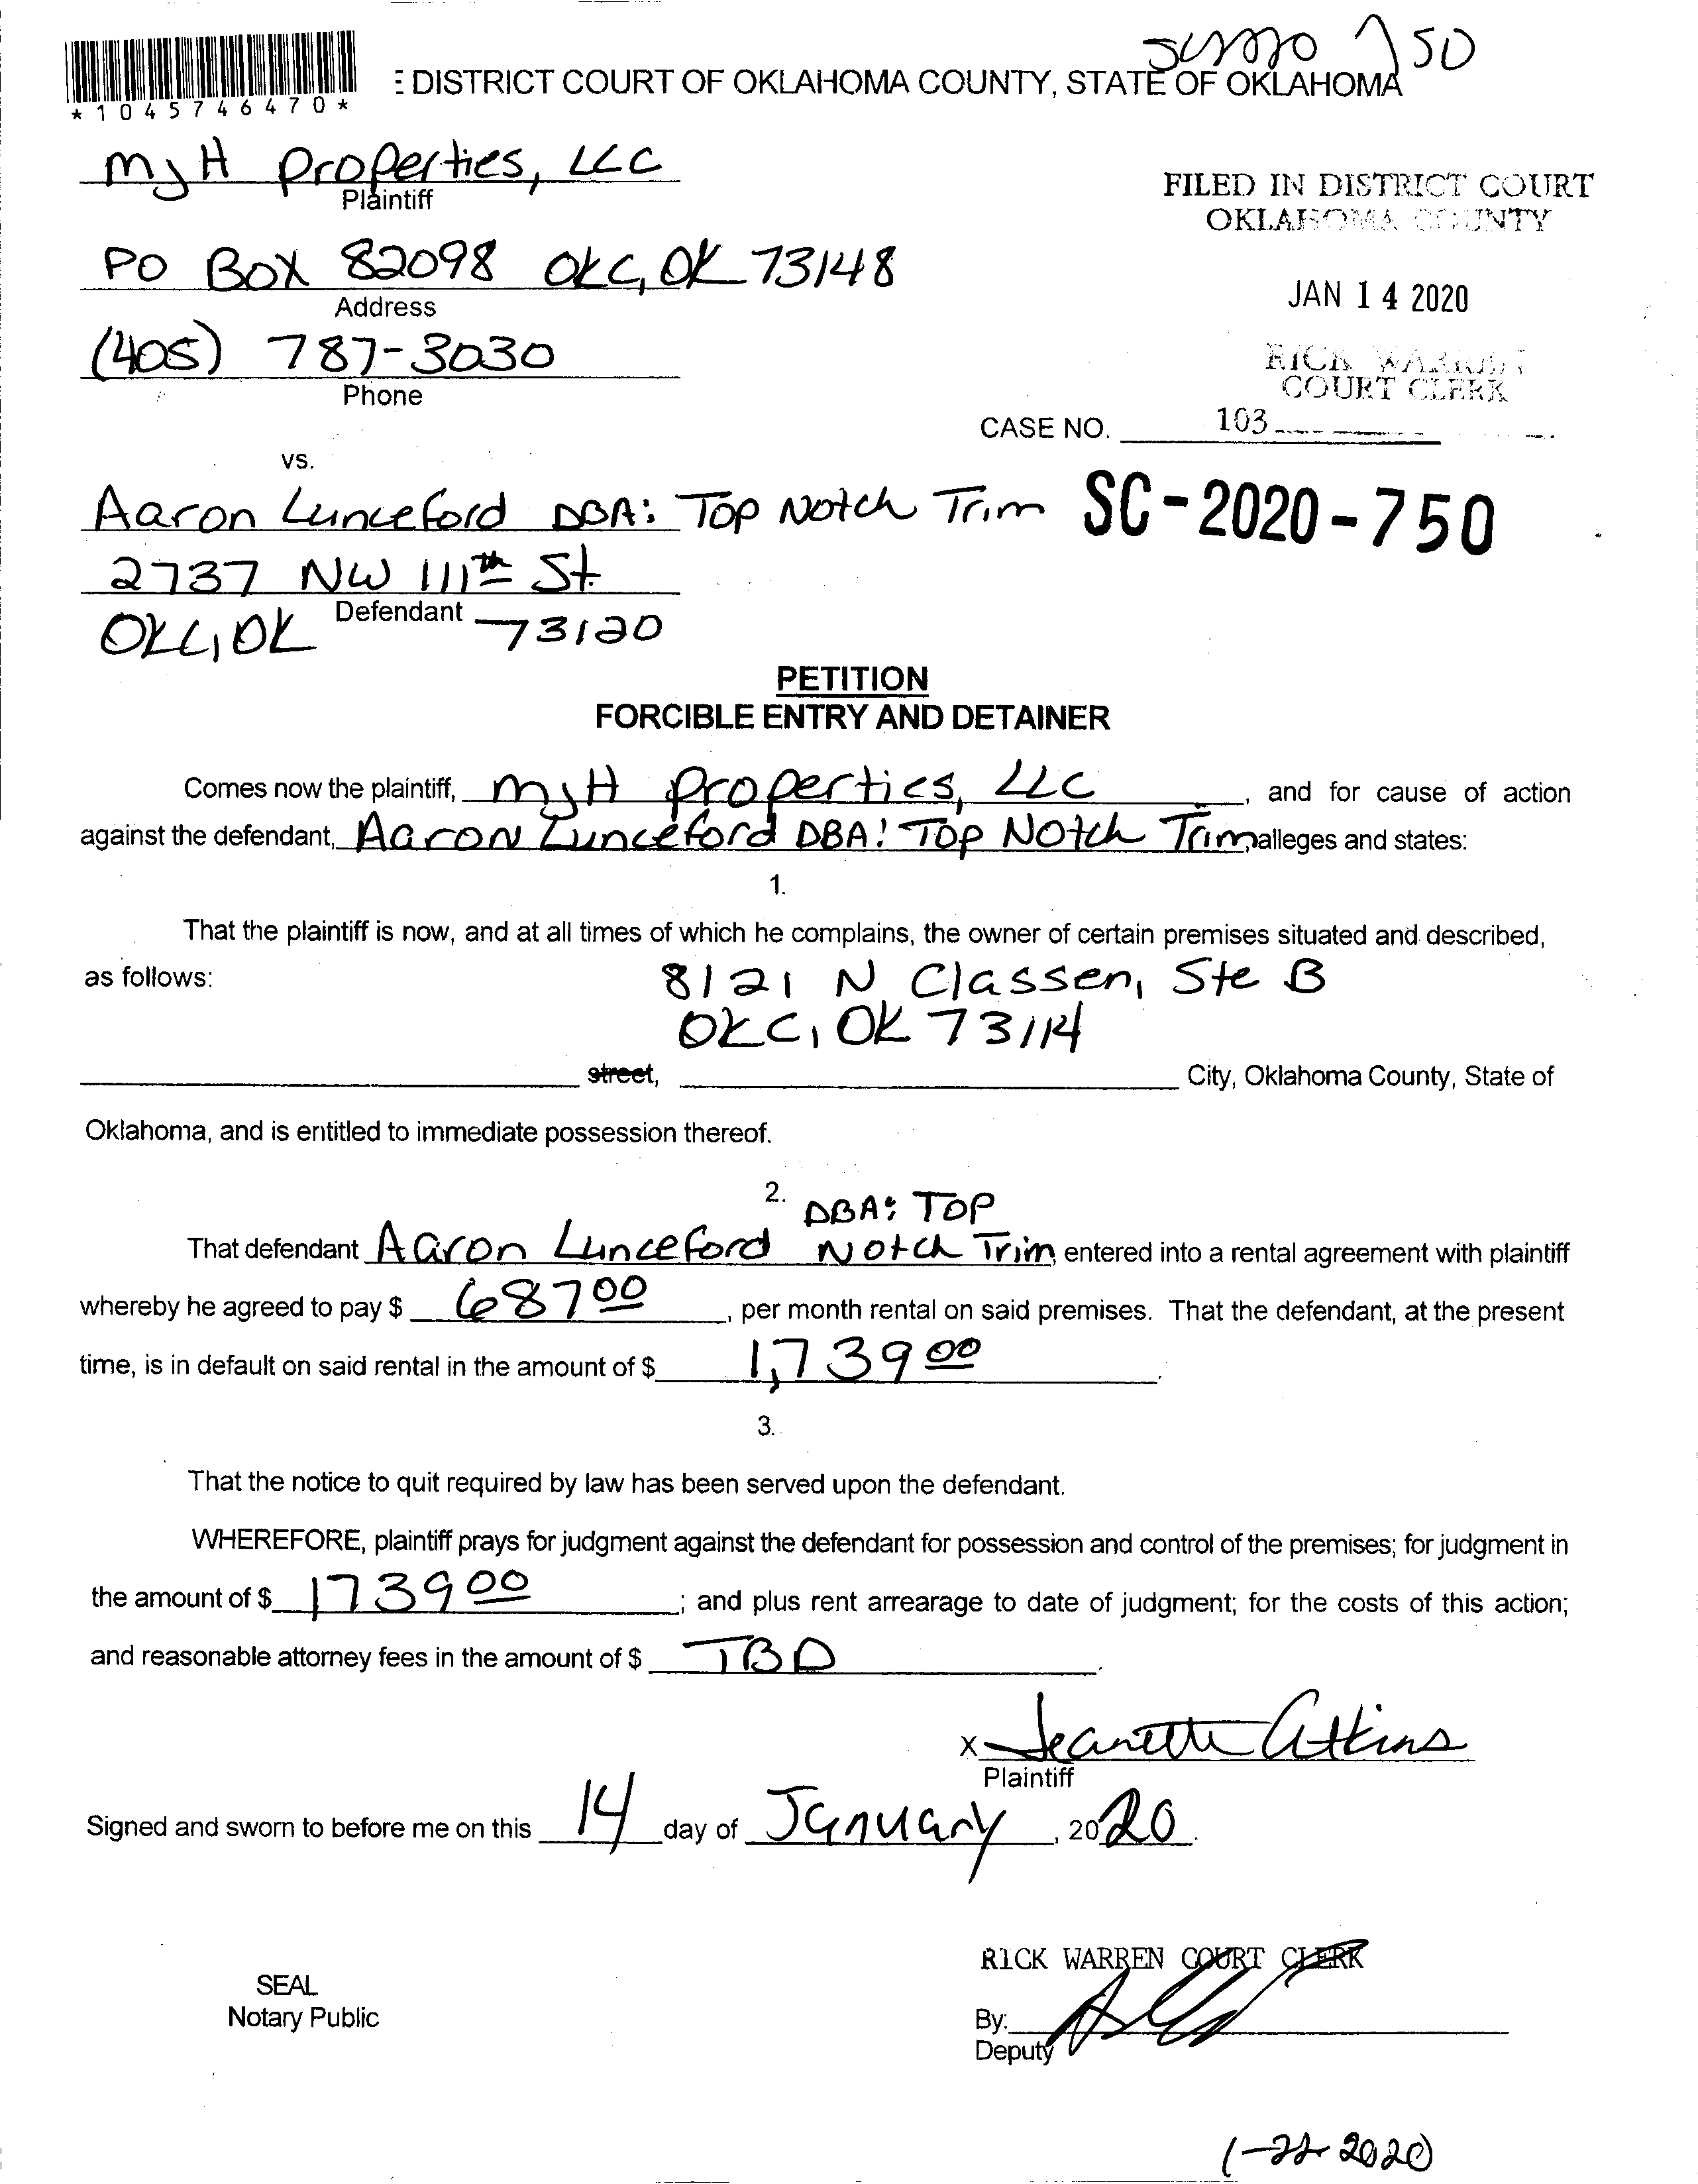 SC2020 750
* 1 0 4 5 7 4 6 4 7 0 *
E DISTRICT COURT OF OKLAHOMA COUNTY, STATE OF OKLAHOMA
MJH Properties, LLC
Plaintiff
FILED IN DISTRICT COURT
OKLAHOMA COUNTY
PO Box 82098 OKC, OK 73148
Address
JAN 14 2020
(405) 787-3030
Phone
RICK WARREN
COURT CLERK
CASE NO. 103
vs.
Aaron Lunceford DBA: Top Notch Trim
SC-2020-750
2737 NW 111th St.
Defendant
OKC, OK 73120
PETITION
FORCIBLE ENTRY AND DETAINER
Comes now the plaintiff, MJH Properties, LLC, and for cause of action
against the defendant, Aaron Lunceford DBA: Top Notch Trim alleges and states:
1.
That the plaintiff is now, and at all times of which he complains, the owner of certain premises situated and described,
as follows: 8121 N Classen, Ste B
OKC, OK 73114
street, City, Oklahoma County, State of
Oklahoma, and is entitled to immediate possession thereof.
2.
DBA: Top
That defendant Aaron Lunceford Notch Trim, entered into a rental agreement with plaintiff
whereby he agreed to pay $ 687 00, per month rental on said premises. That the defendant, at the present
time, is in default on said rental in the amount of $ 1,739 00.
3.
That the notice to quit required by law has been served upon the defendant.
WHEREFORE, plaintiff prays for judgment against the defendant for possession and control of the premises; for judgment in
the amount of $ 1739 00; and plus rent arrearage to date of judgment; for the costs of this action;
and reasonable attorney fees in the amount of $ TBD.
X Jeanette Atkins
Plaintiff
Signed and sworn to before me on this 14 day of January, 2020.
RICK WARREN COURT CLERK
SEAL
Notary Public
By:
Deputy
1-22-2020